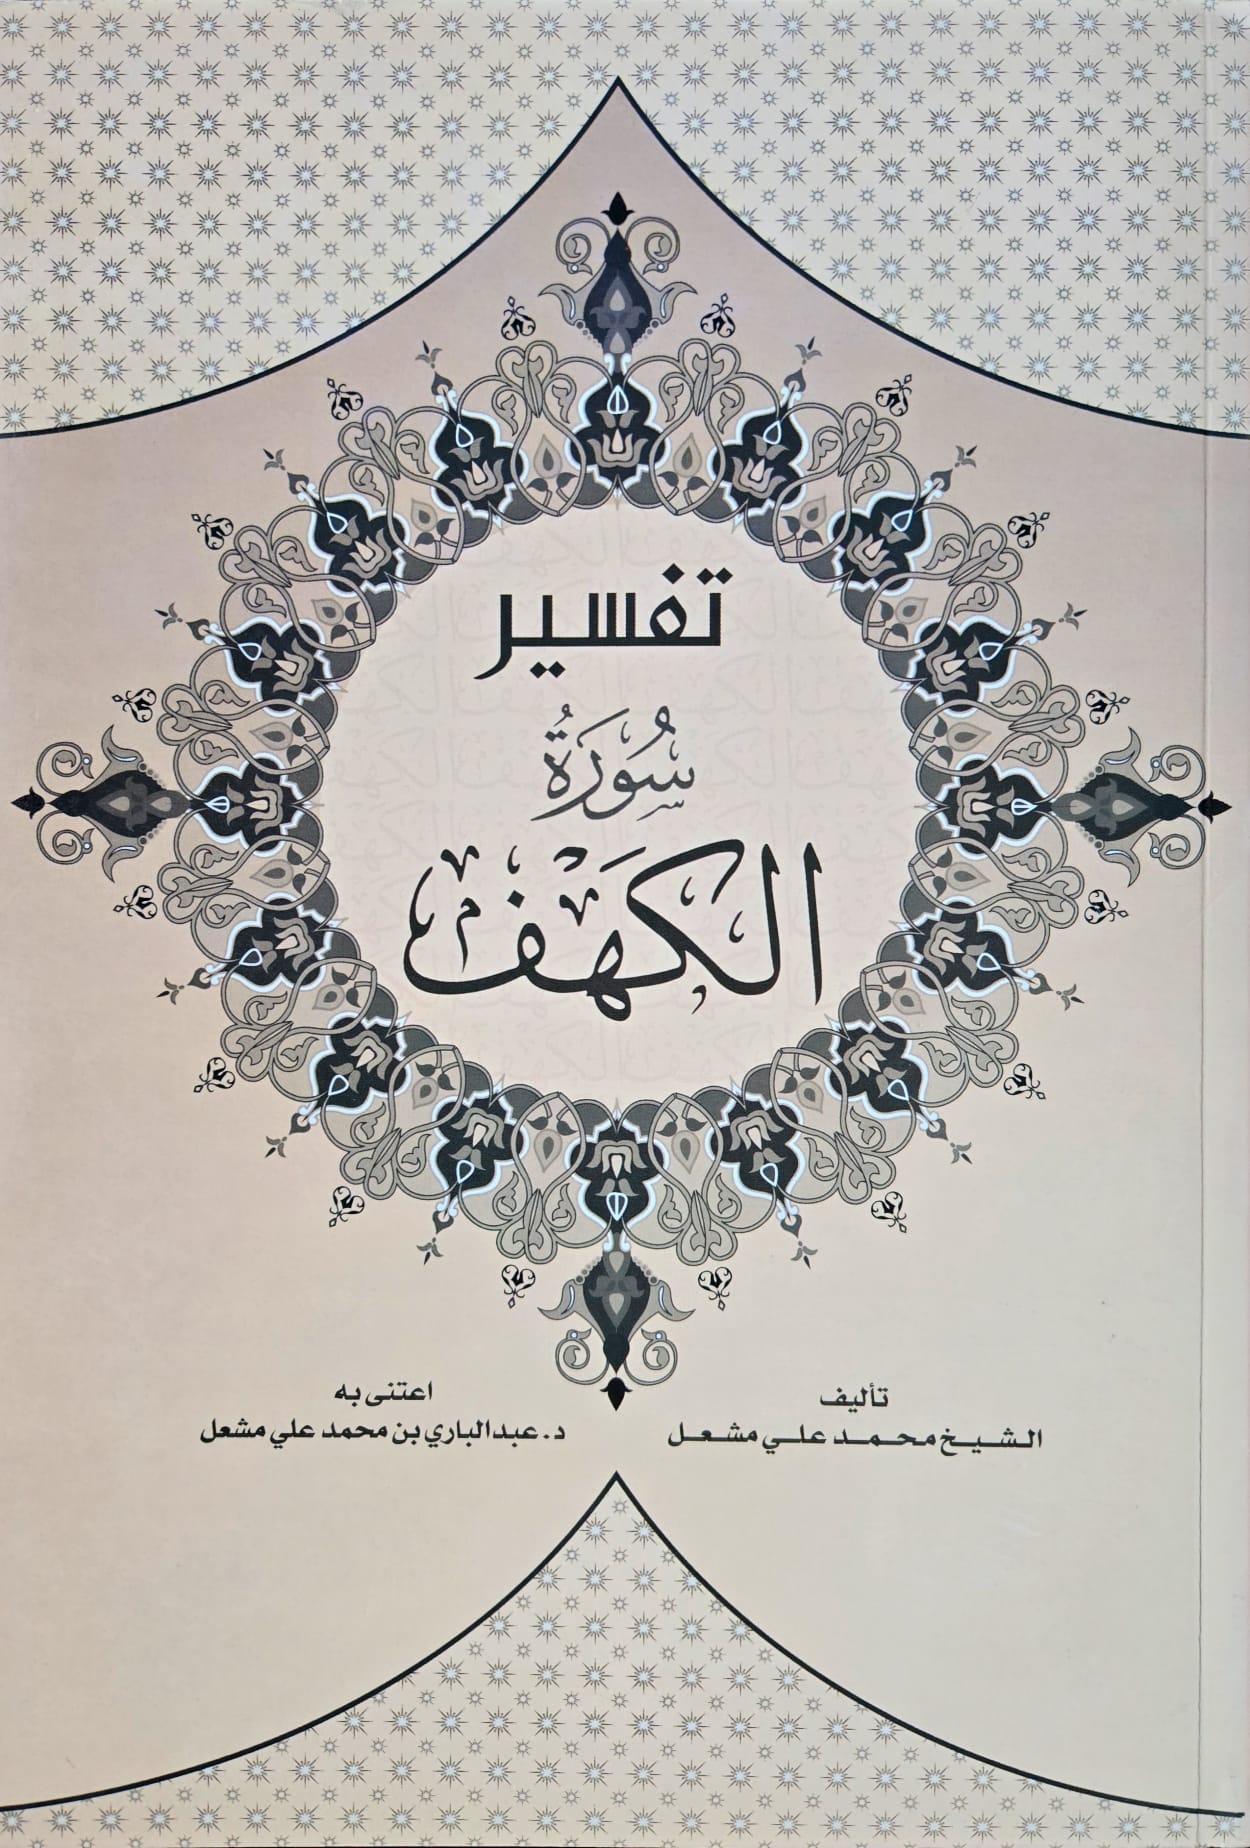 تفسير
سُورَةُ
الكهف
تأليف
الشيخ محمد علي مشعل
اعتنى به
د. عبدالباري بن محمد علي مشعل